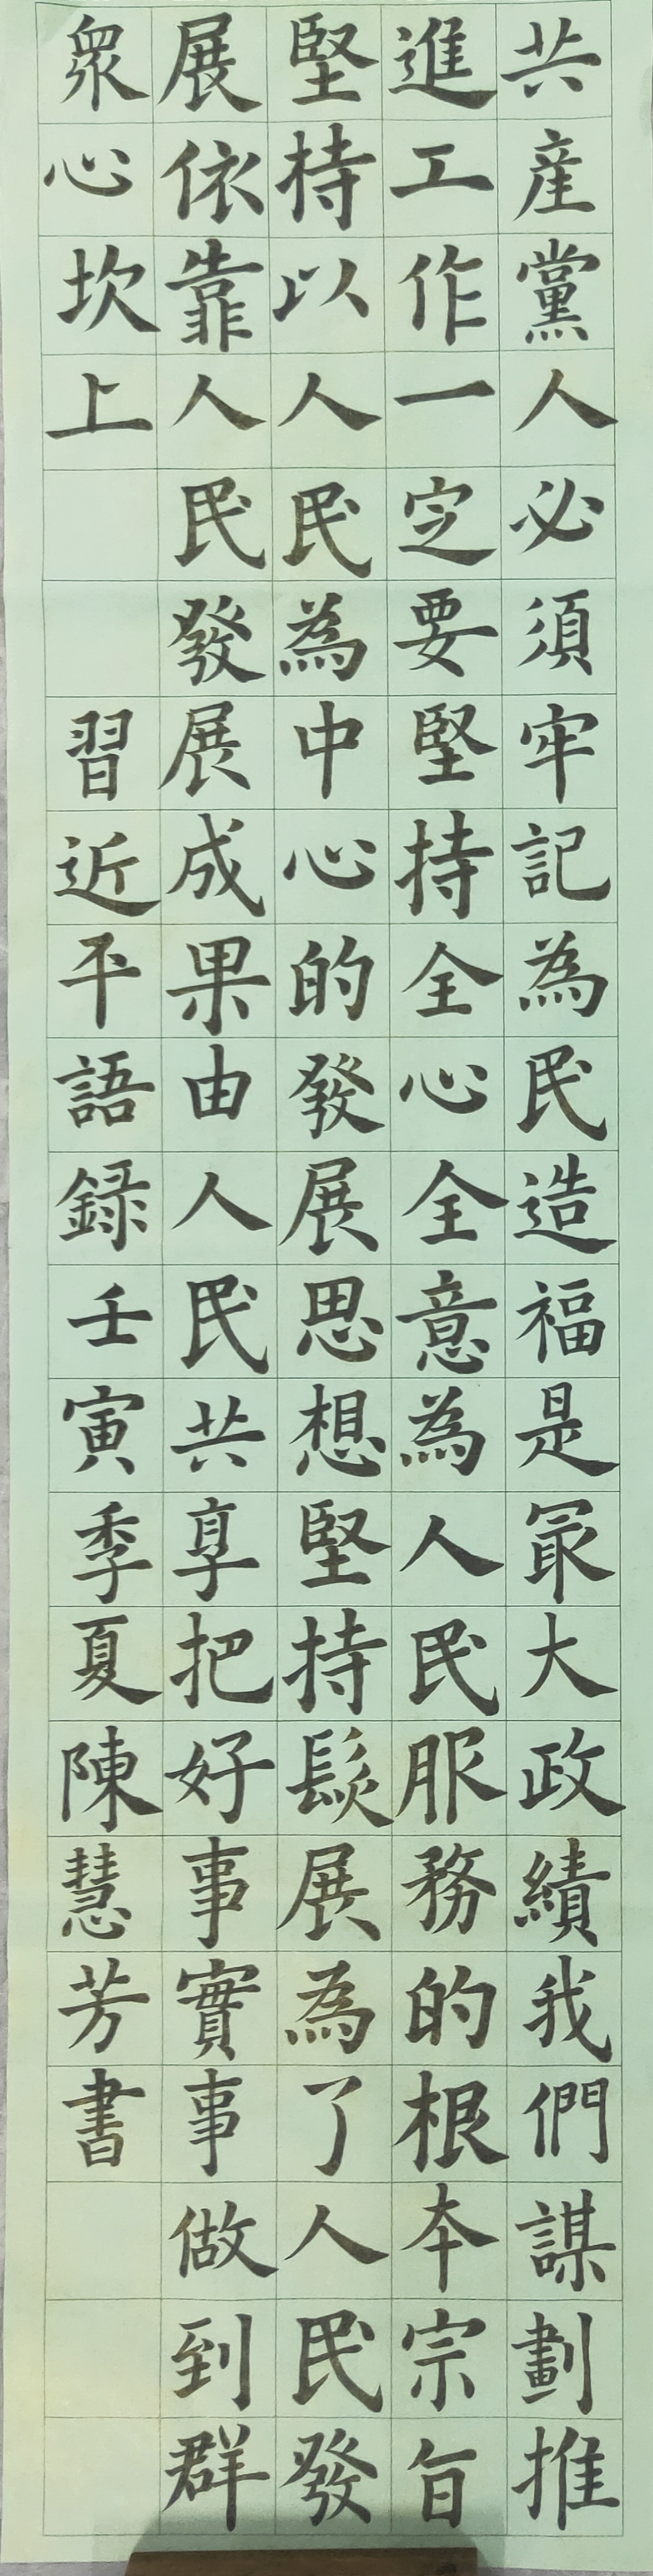 共產黨人必須牢記為民造福是冣大政績我們謀劃推
進工作一定要堅持全心全意為人民服務的根本宗旨
堅持以人民為中心的發展思想堅持髮展為了人民發
展依靠人民發展成果由人民共享把好事實事做到群
眾心坎上
習近平語錄壬寅季夏陳慧芳書